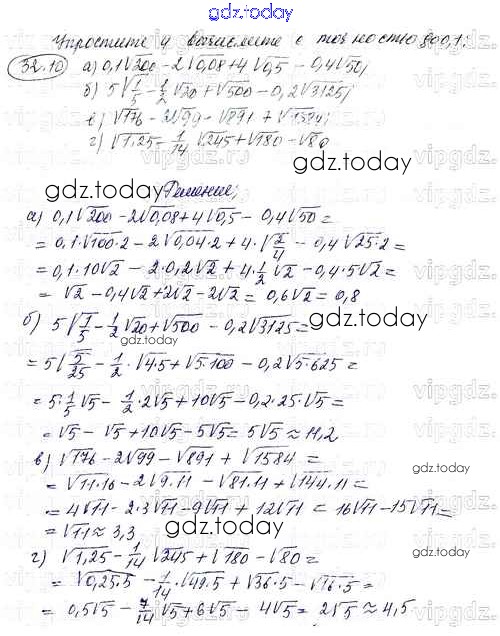 gdz.today
Упростите и вычислите с точностью до 0,1:
32.10 а) 0,1√200 - 2√0,08 + 4√0,5 - 0,4√50;
б) 5√1/5 - 1/2√20 + √500 - 0,2√3125;
в) √176 - 2√99 - √891 + √1584;
г) √1,25 - 1/14√245 + √180 - √80
gdz.today
gdz.today
Решение:
а) 0,1√200 - 2√0,08 + 4√0,5 - 0,4√50 =
= 0,1·√100·2 - 2√0,04·2 + 4·√2/4 - 0,4√25·2 =
= 0,1·10√2 - 2·0,2√2 + 4·1/2√2 - 0,4·5√2 =
= √2 - 0,4√2 + 2√2 - 2√2 = 0,6√2 = 0,8
gdz.today
б) 5√1/5 - 1/2√20 + √500 - 0,2√3125 =
gdz.today
= 5√5/25 - 1/2·√4·5 + √5·100 - 0,2√5·625 =
= 5·1/5√5 - 1/2·2√5 + 10√5 - 0,2·25·√5 =
= √5 - √5 + 10√5 - 5√5 = 5√5 ≈ 11,2
в) √176 - 2√99 - √891 + √1584 =
gdz.today
= √11·16 - 2√9·11 - √81·11 + √144·11 =
= 4√11 - 2·3√11 - 9√11 + 12√11 = 16√11 - 15√11 =
= √11 ≈ 3,3
gdz.today
г) √1,25 - 1/14√245 + √180 - √80 =
= √0,25·5 - 1/14·√49·5 + √36·5 - √16·5 =
= 0,5√5 - 7/14√5 + 6√5 - 4√5 = 2√5 ≈ 4,5
gdz.today